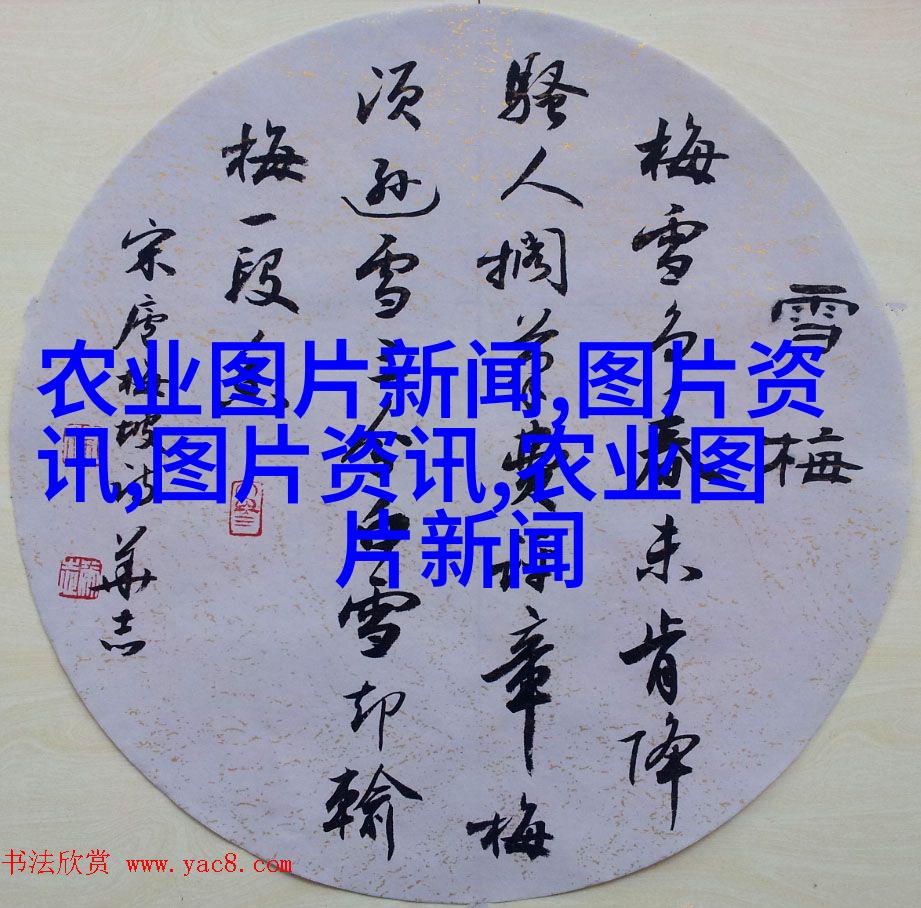 雪梅
梅雪争春未肯降
骚人搁笔费评章梅
须逊雪三分白雪却输
梅一段香
宋卢梅坡诗 华志
农业图片新闻,图片资
讯,图片资讯,农业图
片新闻
书法欣赏 www.yac8.com